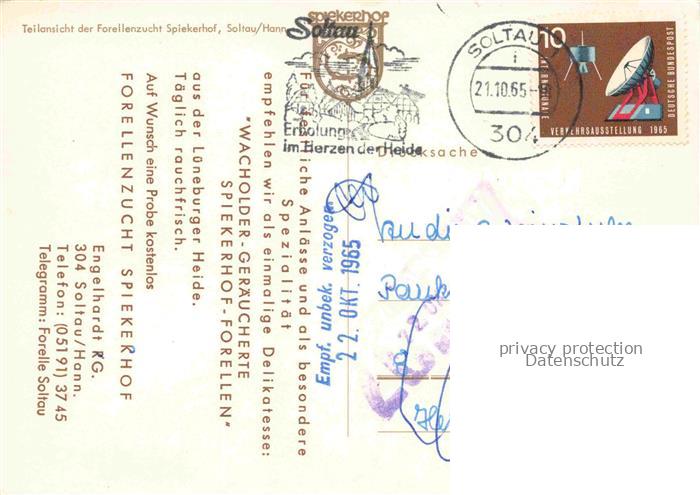 Teilansicht der Forellenzucht Spiekerhof, Soltau/Hann
SPIEKERHOF
Soltau
Erholung
im Herzen der Heide
SOLTAU
i
21.10.65
304
10
INTERNATIONALE
VERKEHRSAUSSTELLUNG 1965
DEUTSCHE BUNDESPOST
Drucksache
Für festliche Anlässe und als besondere
Spezialität
empfehlen wir als einmalige Delikatesse:
"WACHOLDER-GERÄUCHERTE
SPIEKERHOF-FORELLEN"
aus der Lüneburger Heide.
Täglich rauchfrisch.
Auf Wunsch eine Probe kostenlos
FORELLENZUCHT SPIEKERHOF
Engelhardt KG.
304 Soltau/Hann.
Telefon: (05191) 3745
Telegramm: Forelle Soltau
Empf. unbek. verzogen
22. OKT. 1965
An die
privacy protection
Datenschutz